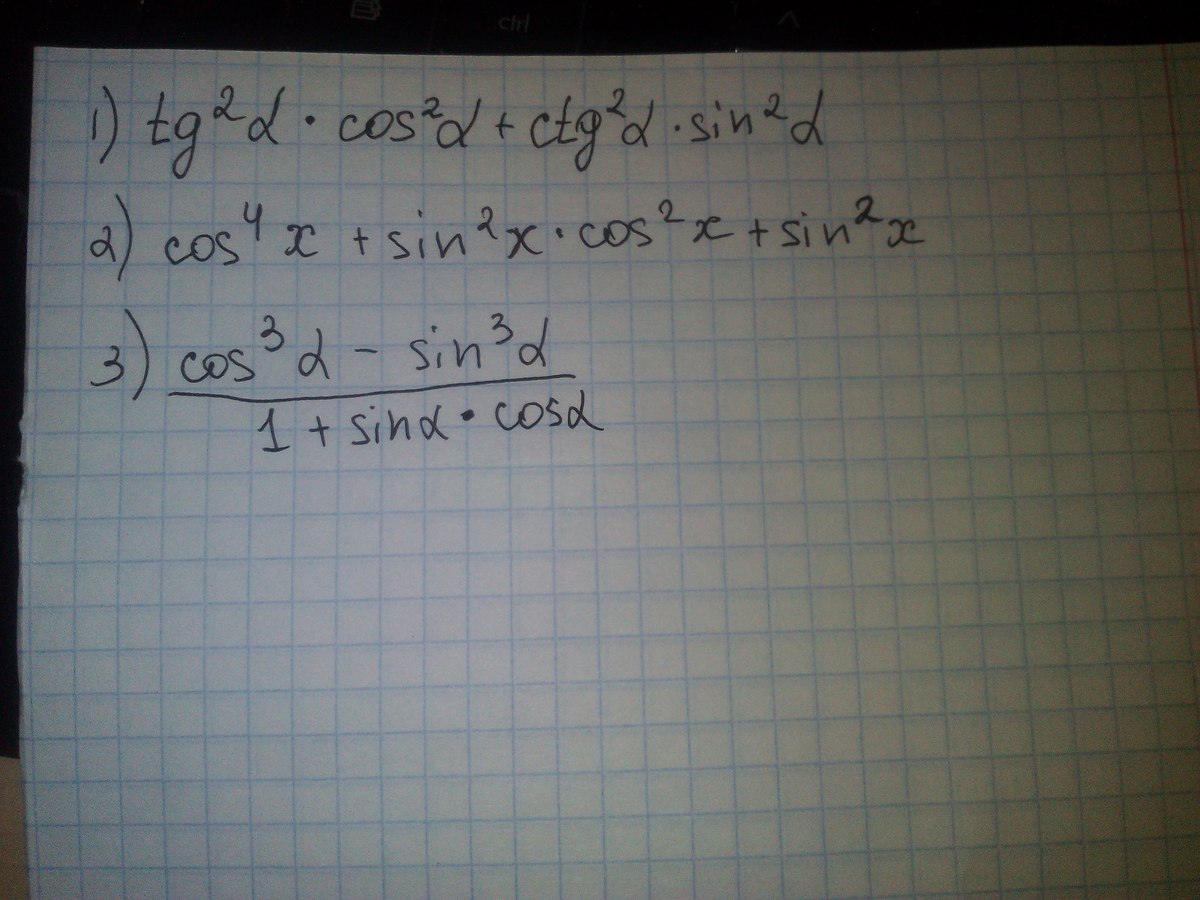 ctrl
1) tg²α · cos²α + ctg²α · sin²α
2) cos⁴x + sin²x · cos²x + sin²x
3) cos³α - sin³α
1 + sinα · cosα